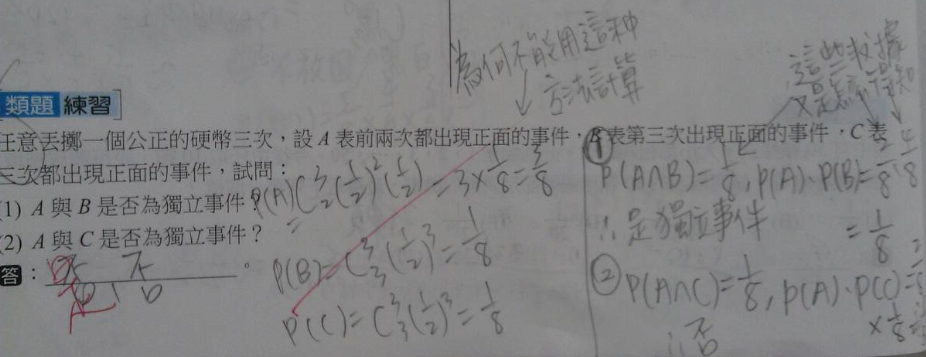 為何不能用這种
方法計算
這些數據
又是怎麼得知
類題 練習
任意丟擲一個公正的硬幣三次,設 A 表前兩次都出現正面的事件,B 表第三次出現正面的事件,C 表
三次都出現正面的事件,試問:
(1) A 與 B 是否為獨立事件?
(2) A 與 C 是否為獨立事件?
答:
P(A) C³₂(1/2)²(1/2) = 3×1/8 = 3/8
P(B) = C³₃(1/2)³ = 1/8
P(C) = C³₃(1/2)³ = 1/8
① P(A∩B) = 1/8, P(A)·P(B) = 2/8 · 4/8
= 1/8
∴是獨立事件
② P(A∩C) = 1/8, P(A)·P(C) =
× 1/8
∴否